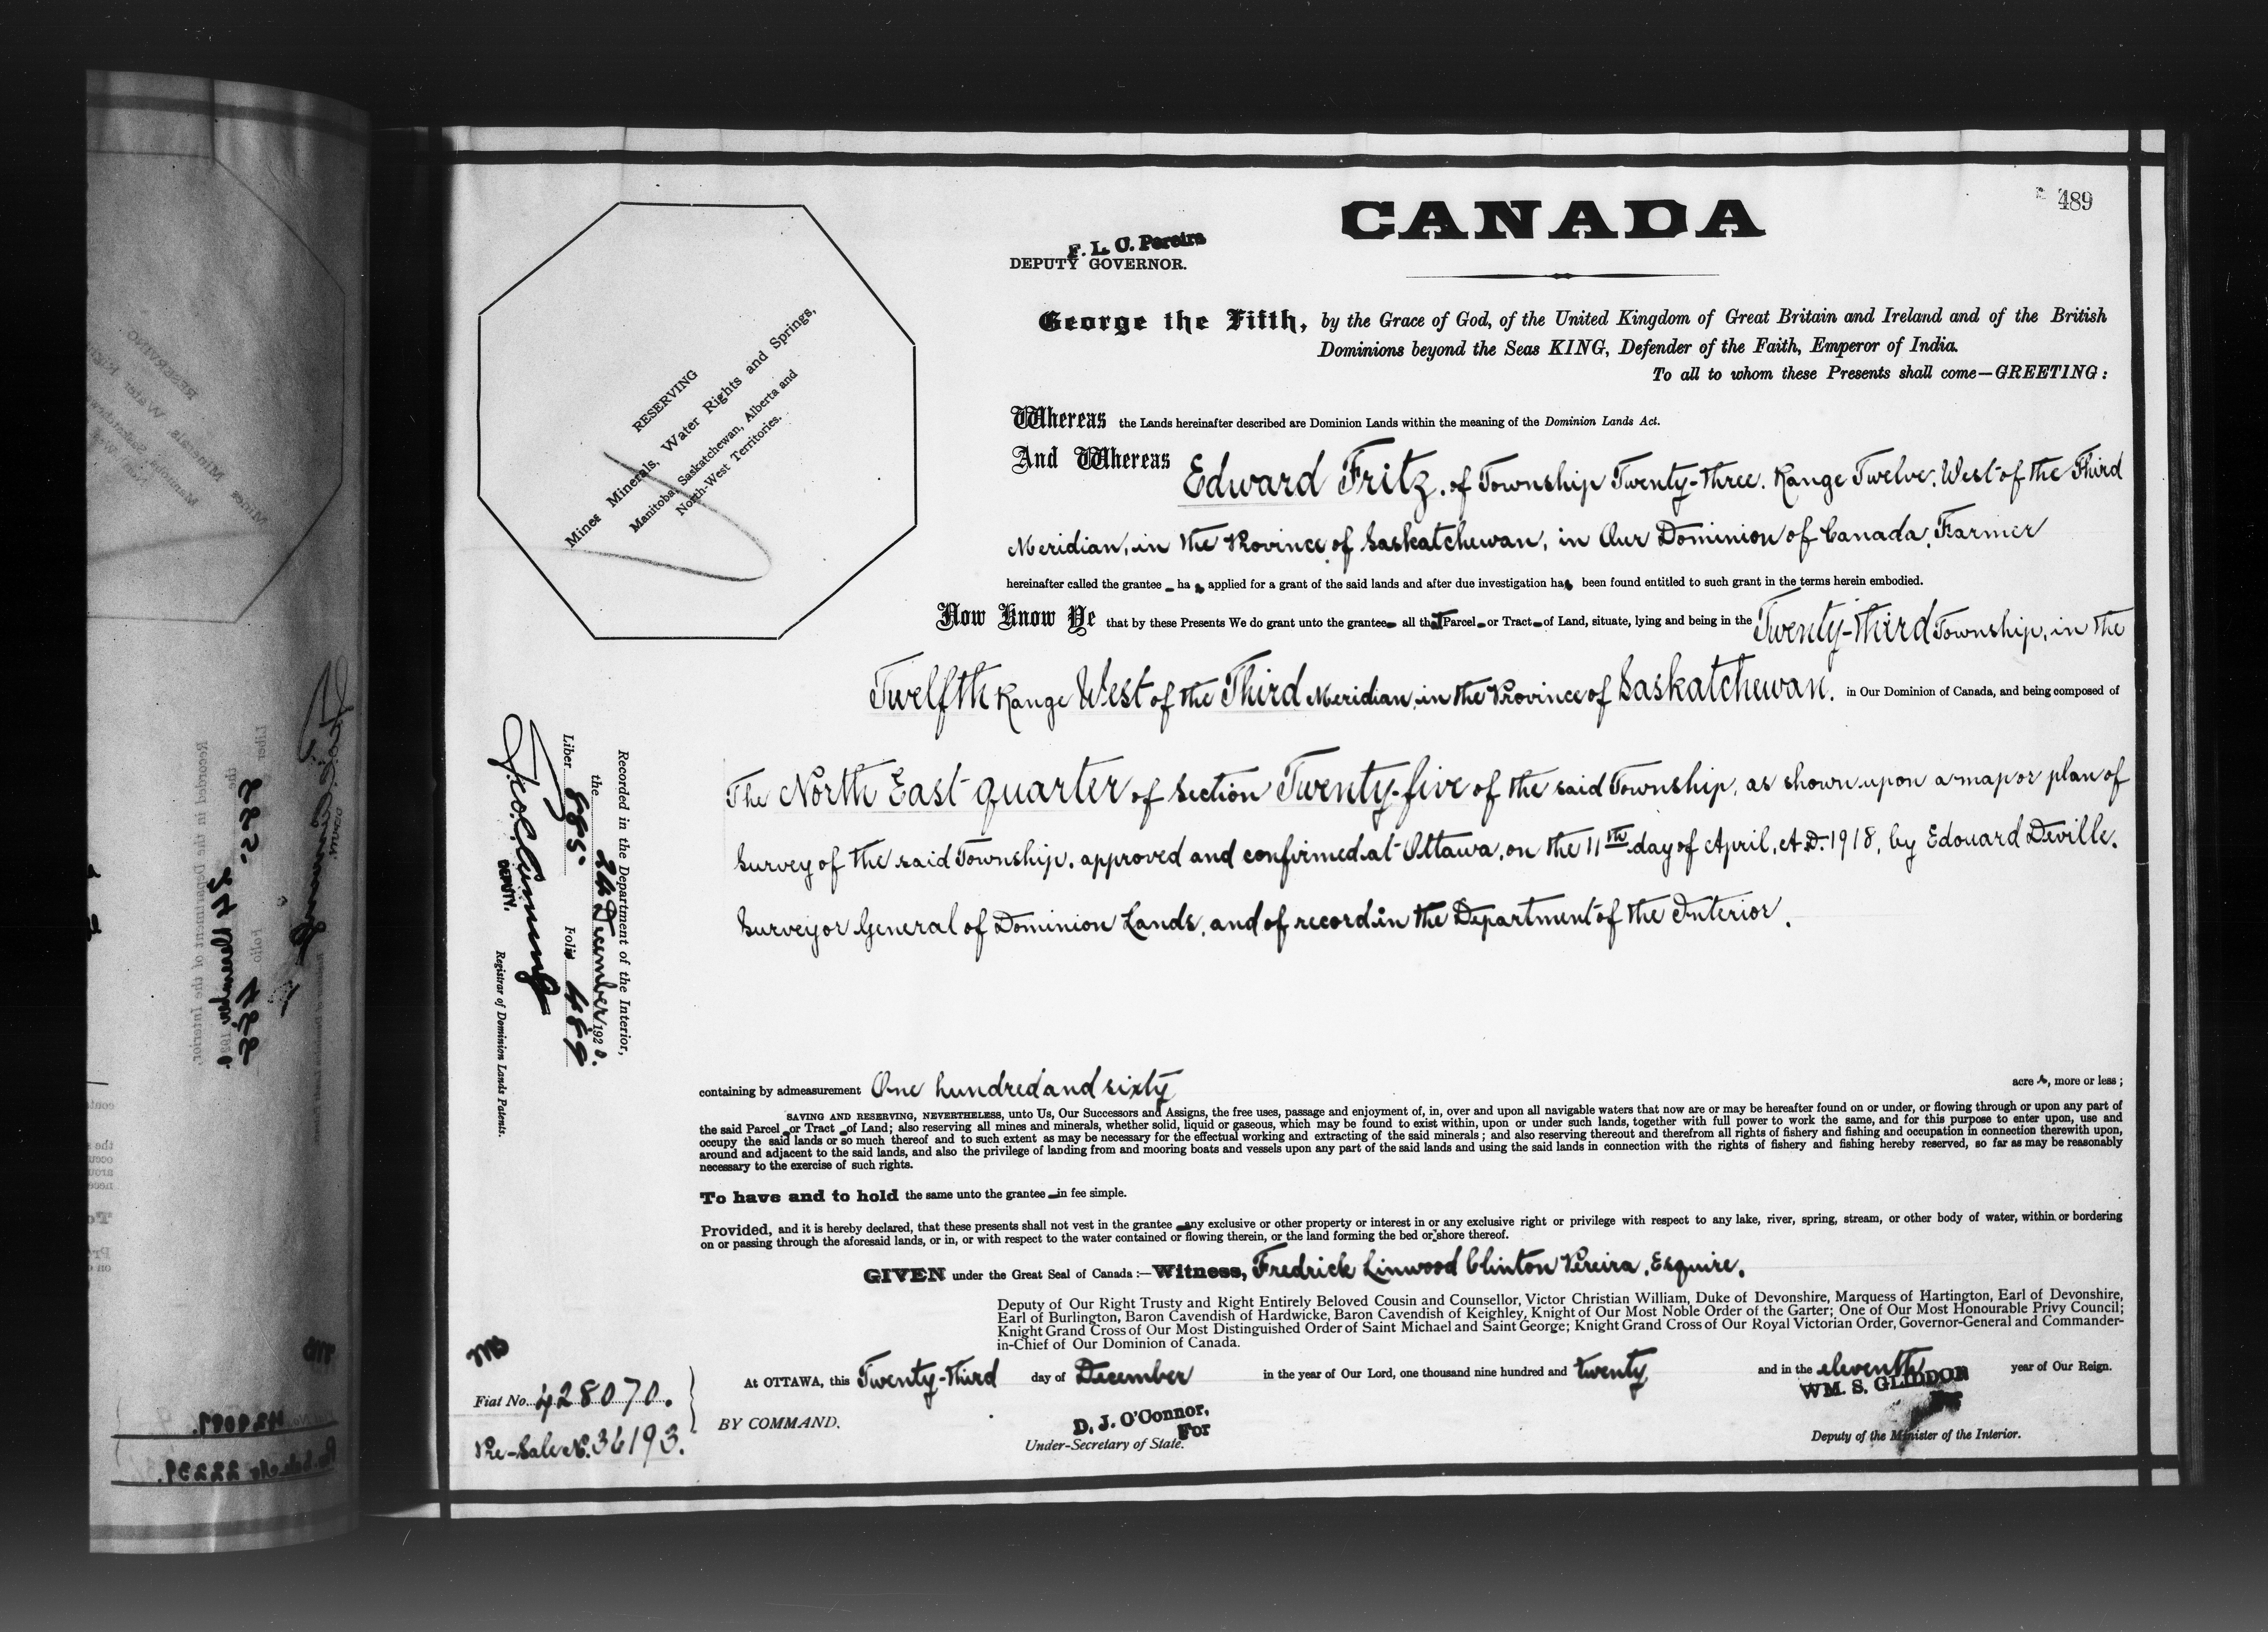 489
CANADA
F. L. C. Pereira
DEPUTY GOVERNOR.
George the Fifth, by the Grace of God, of the United Kingdom of Great Britain and Ireland and of the British
Dominions beyond the Seas KING, Defender of the Faith, Emperor of India.
To all to whom these Presents shall come—GREETING:
RESERVING
Mines Minerals, Water Rights and Springs,
Manitoba, Saskatchewan, Alberta and
North-West Territories.
Whereas the Lands hereinafter described are Dominion Lands within the meaning of the Dominion Lands Act.
And Whereas Edward Fritz, of Township Twenty-three, Range Twelve, West of the Third
Meridian, in the Province of Saskatchewan, in Our Dominion of Canada, Farmer
hereinafter called the grantee has applied for a grant of the said lands and after due investigation has been found entitled to such grant in the terms herein embodied.
Now Know Ye that by these Presents We do grant unto the grantee all that Parcel or Tract of Land, situate, lying and being in the Twenty-third Township, in the
Twelfth Range West of the Third Meridian, in the Province of Saskatchewan, in Our Dominion of Canada, and being composed of
The North East quarter of Section Twenty-five of the said Township, as shown upon a map or plan of
Survey of the said Township, approved and confirmed at Ottawa, on the 11th day of April, A.D. 1918, by Edouard Deville,
Surveyor General of Dominion Lands, and of record in the Department of the Interior.
Recorded in the Department of the Interior,
the 24 December 1920.
Liber 885 Folio 489
DEPUTY. Registrar of Dominion Lands Patents.
containing by admeasurement One hundred and sixty acres, more or less;
SAVING AND RESERVING, NEVERTHELESS, unto Us, Our Successors and Assigns, the free uses, passage and enjoyment of, in, over and upon all navigable waters that now are or may be hereafter found on or under, or flowing through or upon any part of
the said Parcel or Tract of Land; also reserving all mines and minerals, whether solid, liquid or gaseous, which may be found to exist within, upon or under such lands, together with full power to work the same, and for this purpose to enter upon, use and
occupy the said lands or so much thereof and to such extent as may be necessary for the effectual working and extracting of the said minerals; and also reserving thereout and therefrom all rights of fishery and fishing and occupation in connection therewith upon,
around and adjacent to the said lands, and also the privilege of landing from and mooring boats and vessels upon any part of the said lands and using the said lands in connection with the rights of fishery and fishing hereby reserved, so far as may be reasonably
necessary to the exercise of such rights.
To have and to hold the same unto the grantee in fee simple.
Provided, and it is hereby declared, that these presents shall not vest in the grantee any exclusive or other property or interest in or any exclusive right or privilege with respect to any lake, river, spring, stream, or other body of water, within or bordering
on or passing through the aforesaid lands, or in, or with respect to the water contained or flowing therein, or the land forming the bed or shore thereof.
GIVEN under the Great Seal of Canada:—Witness, Fredrick Linwood Clinton Pereira, Esquire,
Deputy of Our Right Trusty and Right Entirely Beloved Cousin and Counsellor, Victor Christian William, Duke of Devonshire, Marquess of Hartington, Earl of Devonshire,
Earl of Burlington, Baron Cavendish of Hardwicke, Baron Cavendish of Keighley, Knight of Our Most Noble Order of the Garter; One of Our Most Honourable Privy Council;
Knight Grand Cross of Our Most Distinguished Order of Saint Michael and Saint George; Knight Grand Cross of Our Royal Victorian Order, Governor-General and Commander-
in-Chief of Our Dominion of Canada.
At OTTAWA, this Twenty-third day of December in the year of Our Lord, one thousand nine hundred and twenty and in the eleventh year of Our Reign.
WM. S. GLIDDON
Fiat No. 428070.
BY COMMAND.
D. J. O'Connor,
For
Under-Secretary of State.
Deputy of the Minister of the Interior.
Pre-Sale No. 36193.